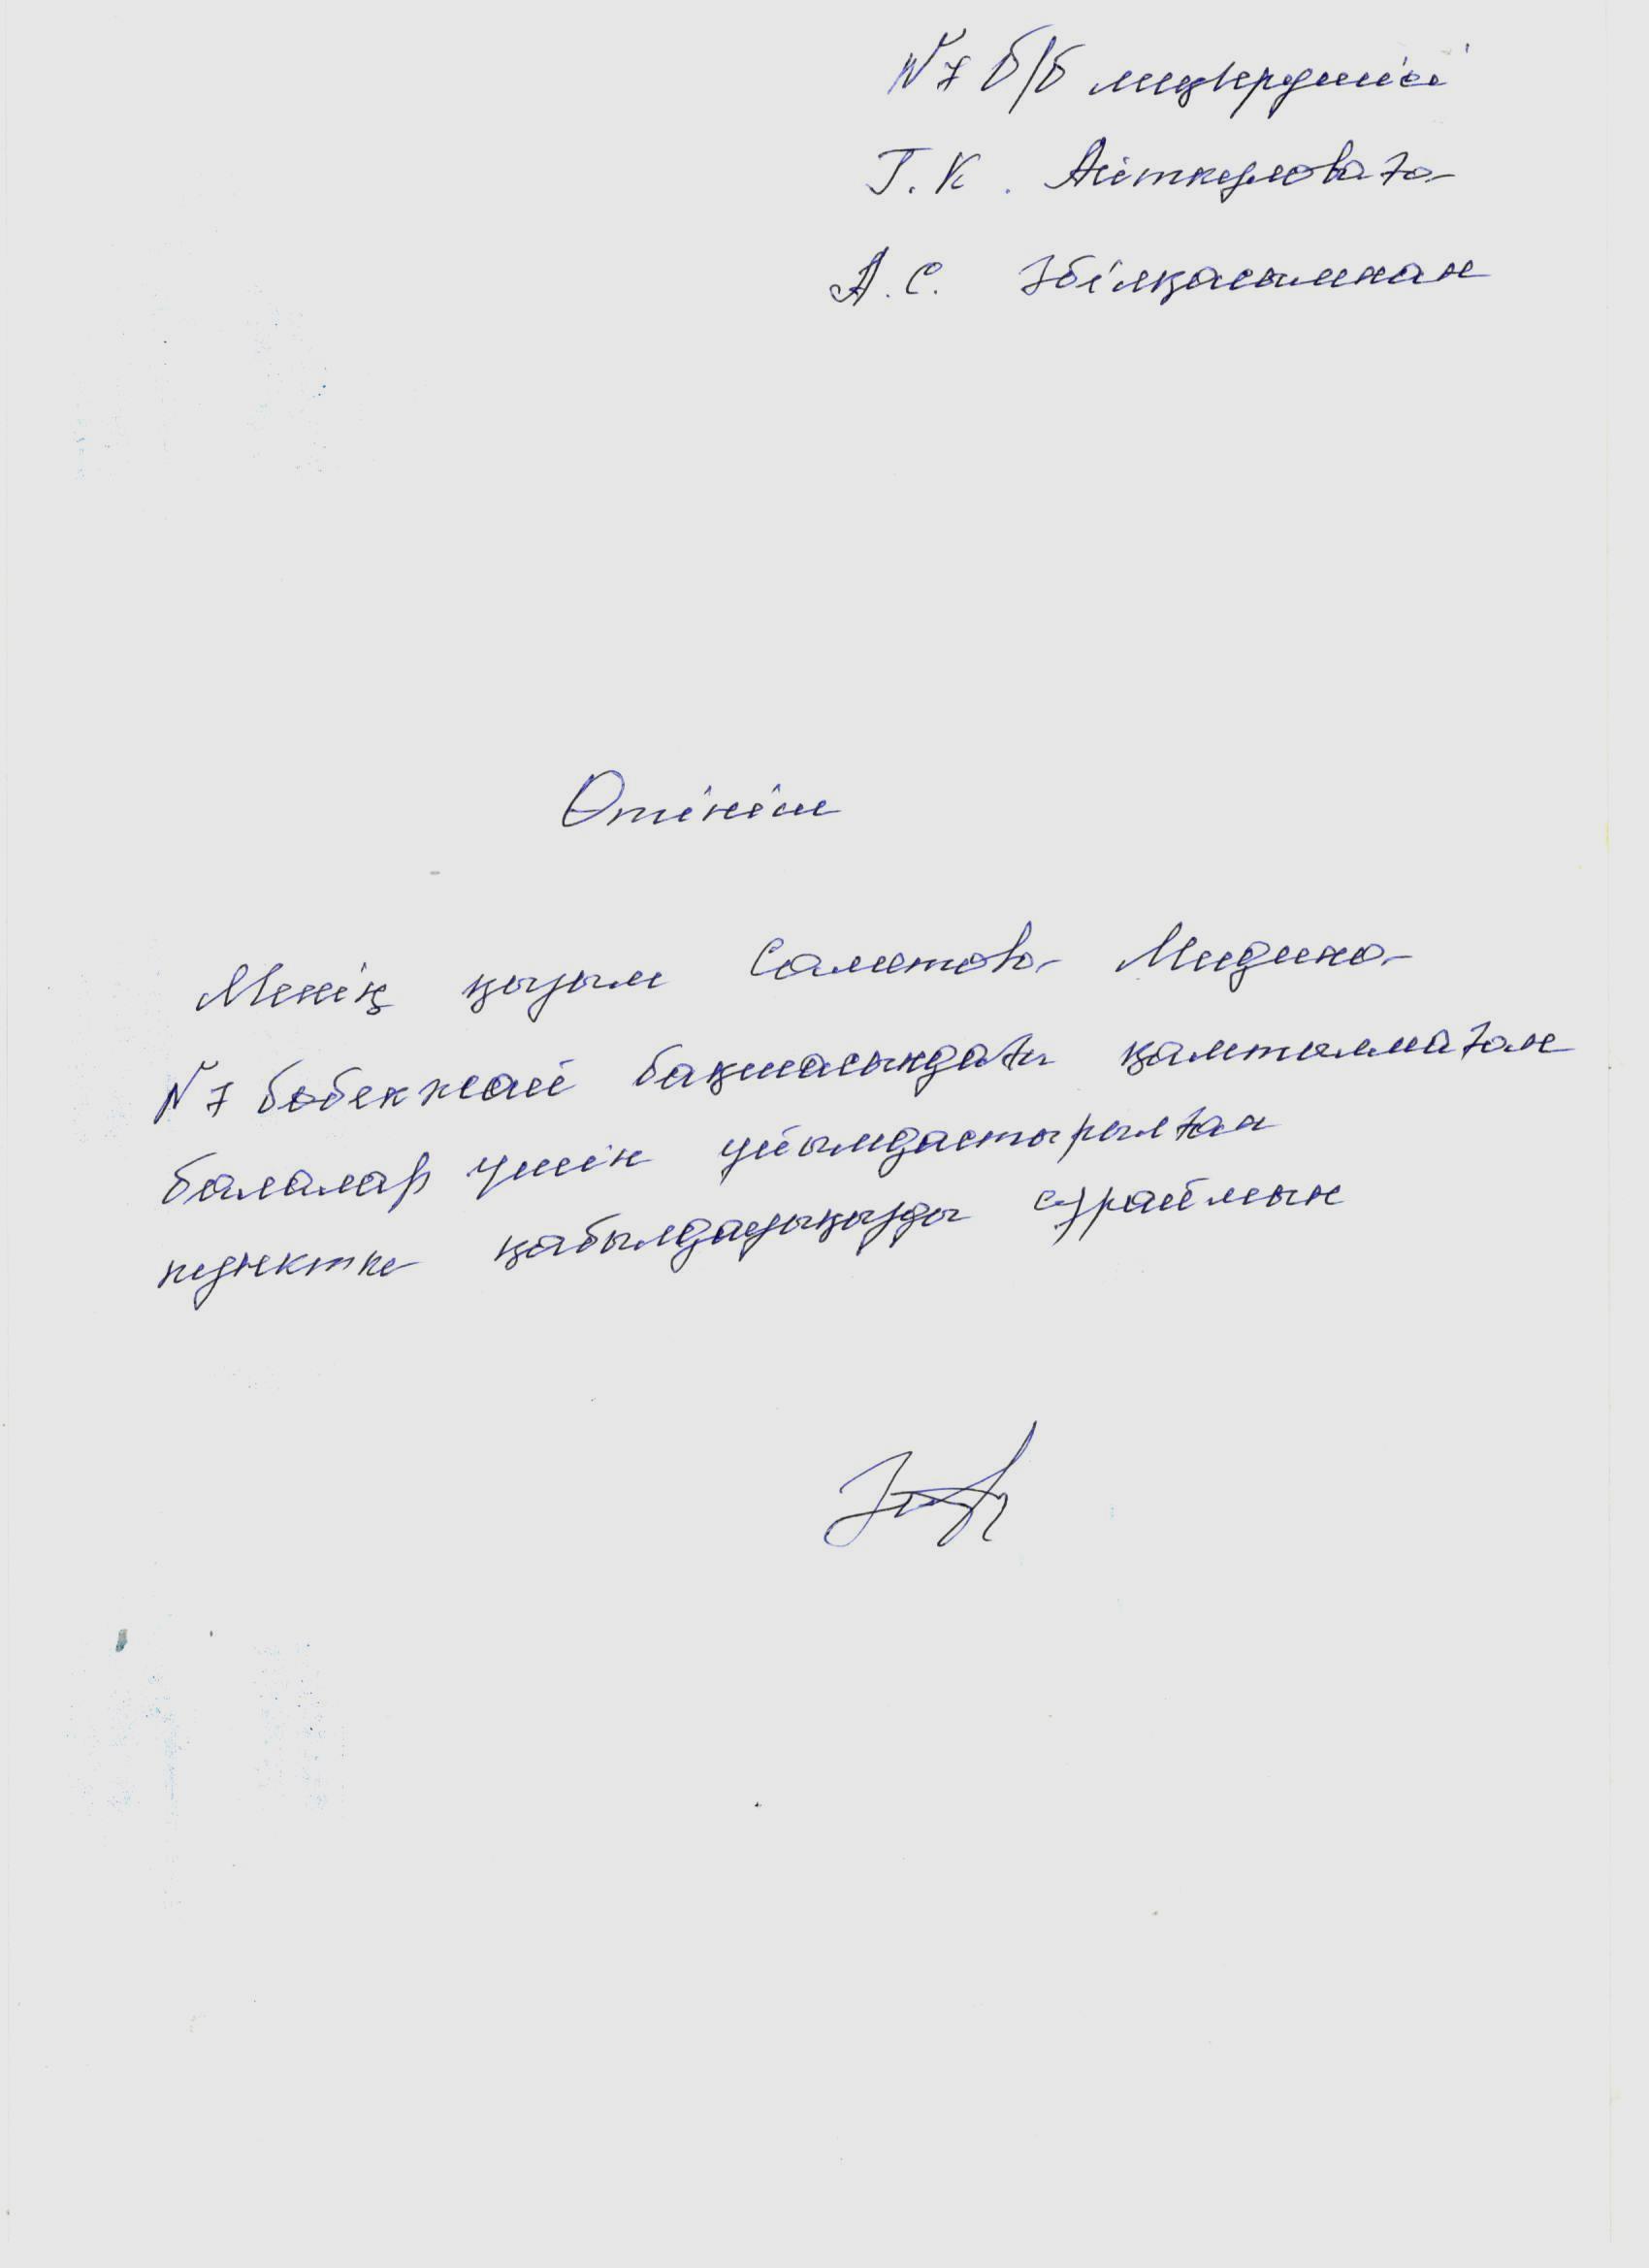 №7 б/б меңгерушісі
Г.К. Айткуловаға
А.С. Әбілқасымнан
Өтініш
Менің қызым Саметова Мидина
№7 бөбекжай бақшасындағы қамтылмаған
балалар үшін ұйымдастырылған
пунктке қабылдауыңызды сұраймын